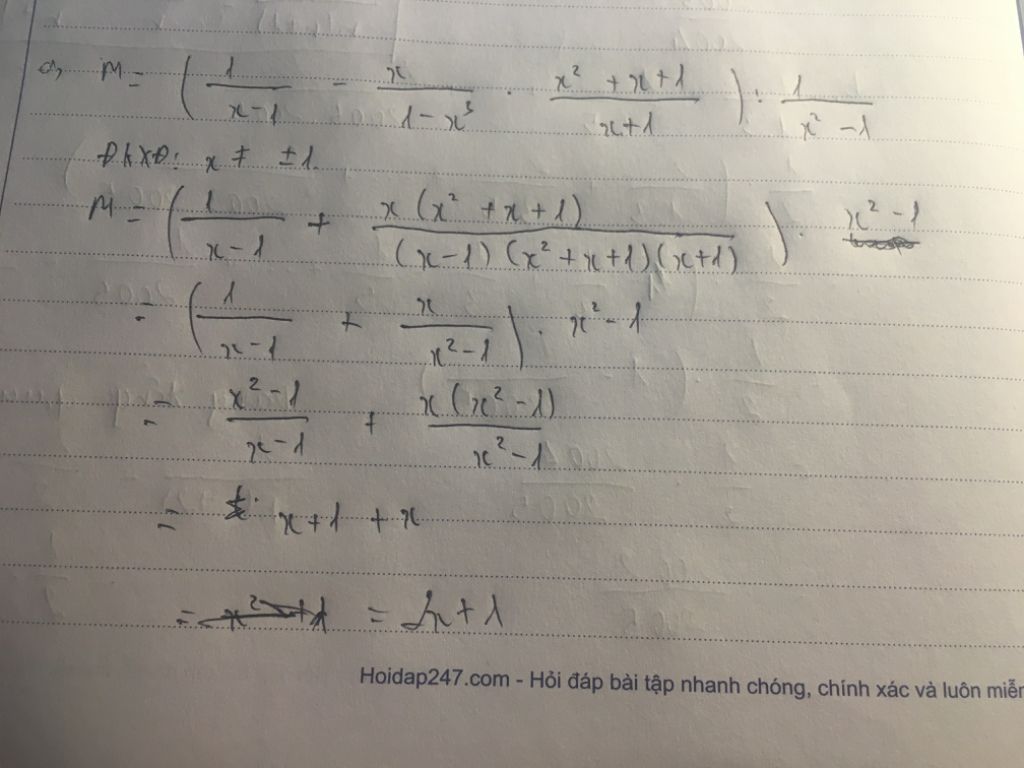 a, M = ( 1/(x-1) - x/(1-x³) . (x²+x+1)/(x+1) ) : 1/(x²-1)
ĐKXĐ: x ≠ ±1.
M = ( 1/(x-1) + x(x²+x+1)/((x-1)(x²+x+1)(x+1)) ) . x²-1
= ( 1/(x-1) + x/(x²-1) ) . x²-1
= (x²-1)/(x-1) + x(x²-1)/(x²-1)
= x+1 + x
= 2x+1
Hoidap247.com - Hỏi đáp bài tập nhanh chóng, chính xác và luôn miễn